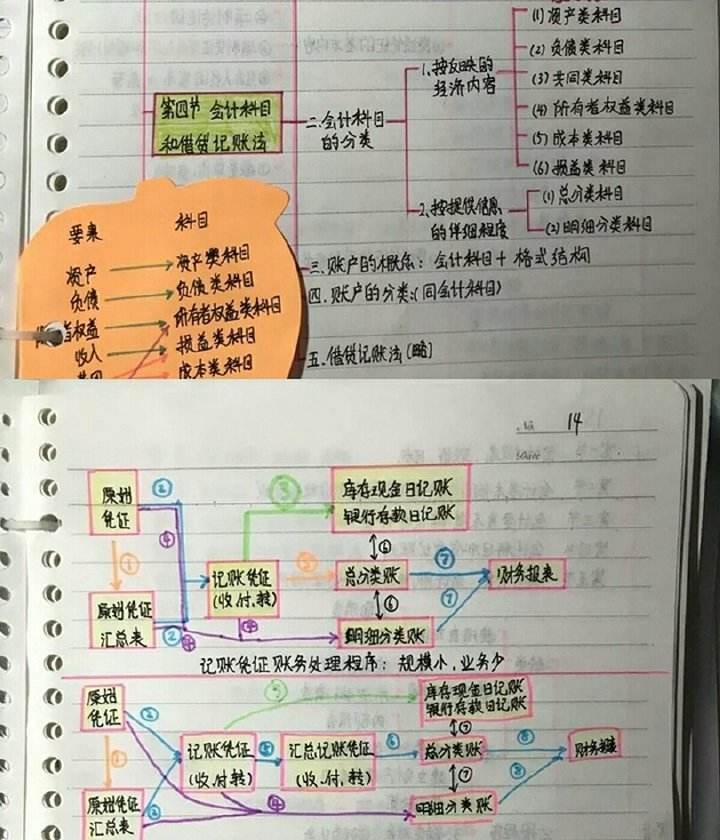 (1) 资产类科目
(2) 负债类科目
(3) 共同类科目
(4) 所有者权益类科目
(5) 成本类科目
(6) 损益类科目
1.按反映的
经济内容
第四节 会计科目
和借贷记账法
二.会计科目
的分类
2.按提供信息
的详细程度
(1) 总分类科目
(2) 明细分类科目
三.账户的概念: 会计科目+格式结构
四.账户的分类:(同会计科目)
五.借贷记账法(略)
要素 科目
资产 资产类科目
负债 负债类科目
者权益 所有者权益类科目
收入 损益类科目
成本类科目
No. 14
原始
凭证
② ③
库存现金日记账
银行存款日记账
④ ⑥
①
记账凭证
(收.付.转)
⑤
总分类账
⑦
财务报表
原始凭证
汇总表
② ④ ④ ⑥ ⑦
明细分类账
记账凭证账务处理程序: 规模小,业务少
原始
凭证
② ③
库存现金日记账
银行存款日记账
⑦
①
记账凭证
(收.付.转)
⑤
汇总记账凭证
(收.付.转)
⑥
总分类账
⑧
财务报表
原始凭证
汇总表
② ④ ⑦ ⑧
明细分类账